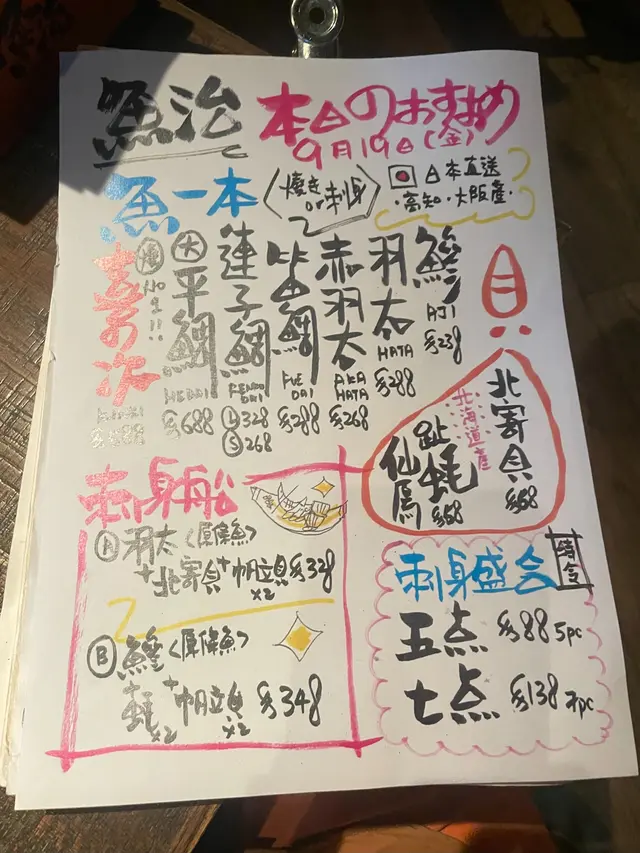 魚治 本日のおすすめ
9月19日(金)
魚一本 〈焼き or 刺身〉
日本直送
高知・大阪産
鯵 AJI $238
羽太 HATA $288
赤羽太 AKA HATA $268
笛鯛 FUE DAI $288
蓮子鯛 RENKO DAI L 328 S 268
大 平鯛 HEDAI $688
喜知次 NO.1!! KINKI
貝
北寄貝 $68
北海道産
仙鳳趾蠔 $68
刺身船
A 羽太〈原條魚〉
+北寄貝+帆立貝 $328
x2
B 鰹〈原條魚〉
+蠔+帆立貝 $348
x2 x2
刺身盛合
五点 $88 5pc
七点 $138 7pc